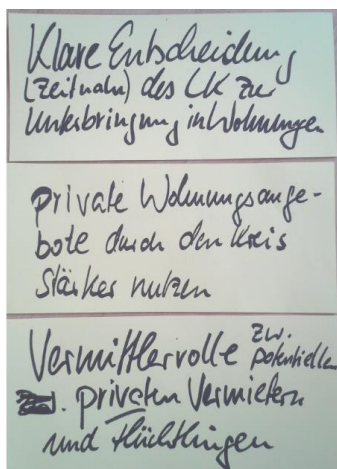 Klare Entscheidung
(zeitnah) des LK zur
Unterbringung in Wohnungen
private Wohnungsange-
bote durch den Kreis
stärker nutzen
Vermittlerrolle zw. potentiellen
privaten Vermietern
und Flüchtlingen